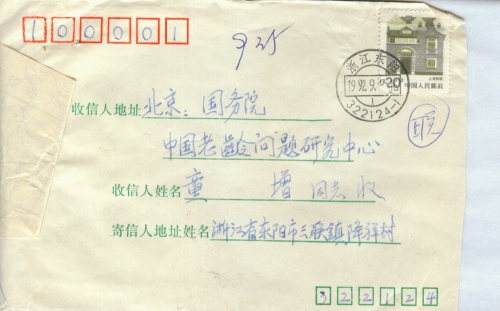 100001
925
浙江东阳
1992.9.
322124-1
20
中国人民邮政
收信人地址 北京：国务院
中国老龄问题研究中心
收信人姓名 童增 同志收
寄信人地址姓名 浙江省东阳市三联镇降祥村
322124